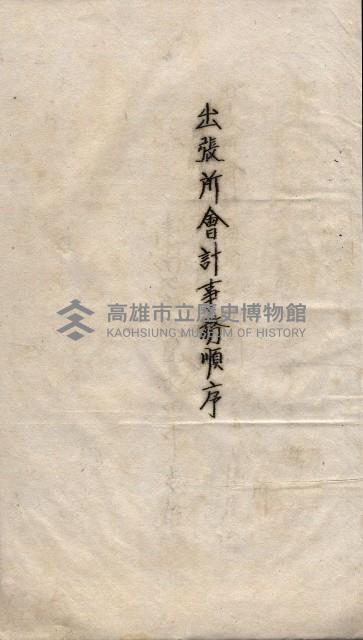 出張所會計事務順序
高雄市立歷史博物館
KAOHSIUNG MUSEUM OF HISTORY